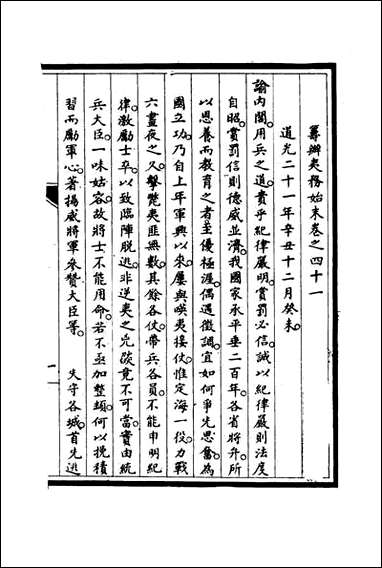 籌辦夷務始末卷之四十一
道光二十一年辛丑十二月癸未
諭內閣用兵之道貴乎紀律嚴明賞罰必信誠以紀律嚴則法度
自昭賞罰信則德威並濟我國家承平垂二百年各省將弁所
以恩養而教育之者至優極渥偶遇徵調宜如何爭先思奮為
國立功乃自上年軍興以來屢與嘆夷接仗惟定海一役力戰
六晝夜之久擊斃夷匪無數其餘各仗帶兵各員不能申明紀
律激勵士卒以致臨陣脫逃非逆夷之兇燄竟不可當實由統
兵大臣一味姑容故將士不能用命若不亟加整頓何以挽積
習而勵軍心著揚威將軍參贊大臣等 失守各城首先逃